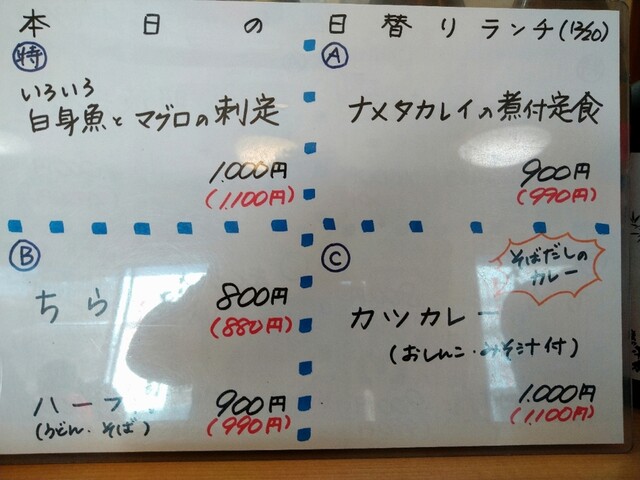 本日の日替りランチ(12/20)
特
いろいろ
白身魚とマグロの刺定
1.000円
(1.100円)
A
ナメタカレイの煮付定食
900円
(990円)
B
ちら
800円
(880円)
ハーフ
900円
(うどん・そば)
(990円)
C
そばだしの
カレー
カツカレー
(おしんこ・みそ汁付)
1.000円
(1.100円)